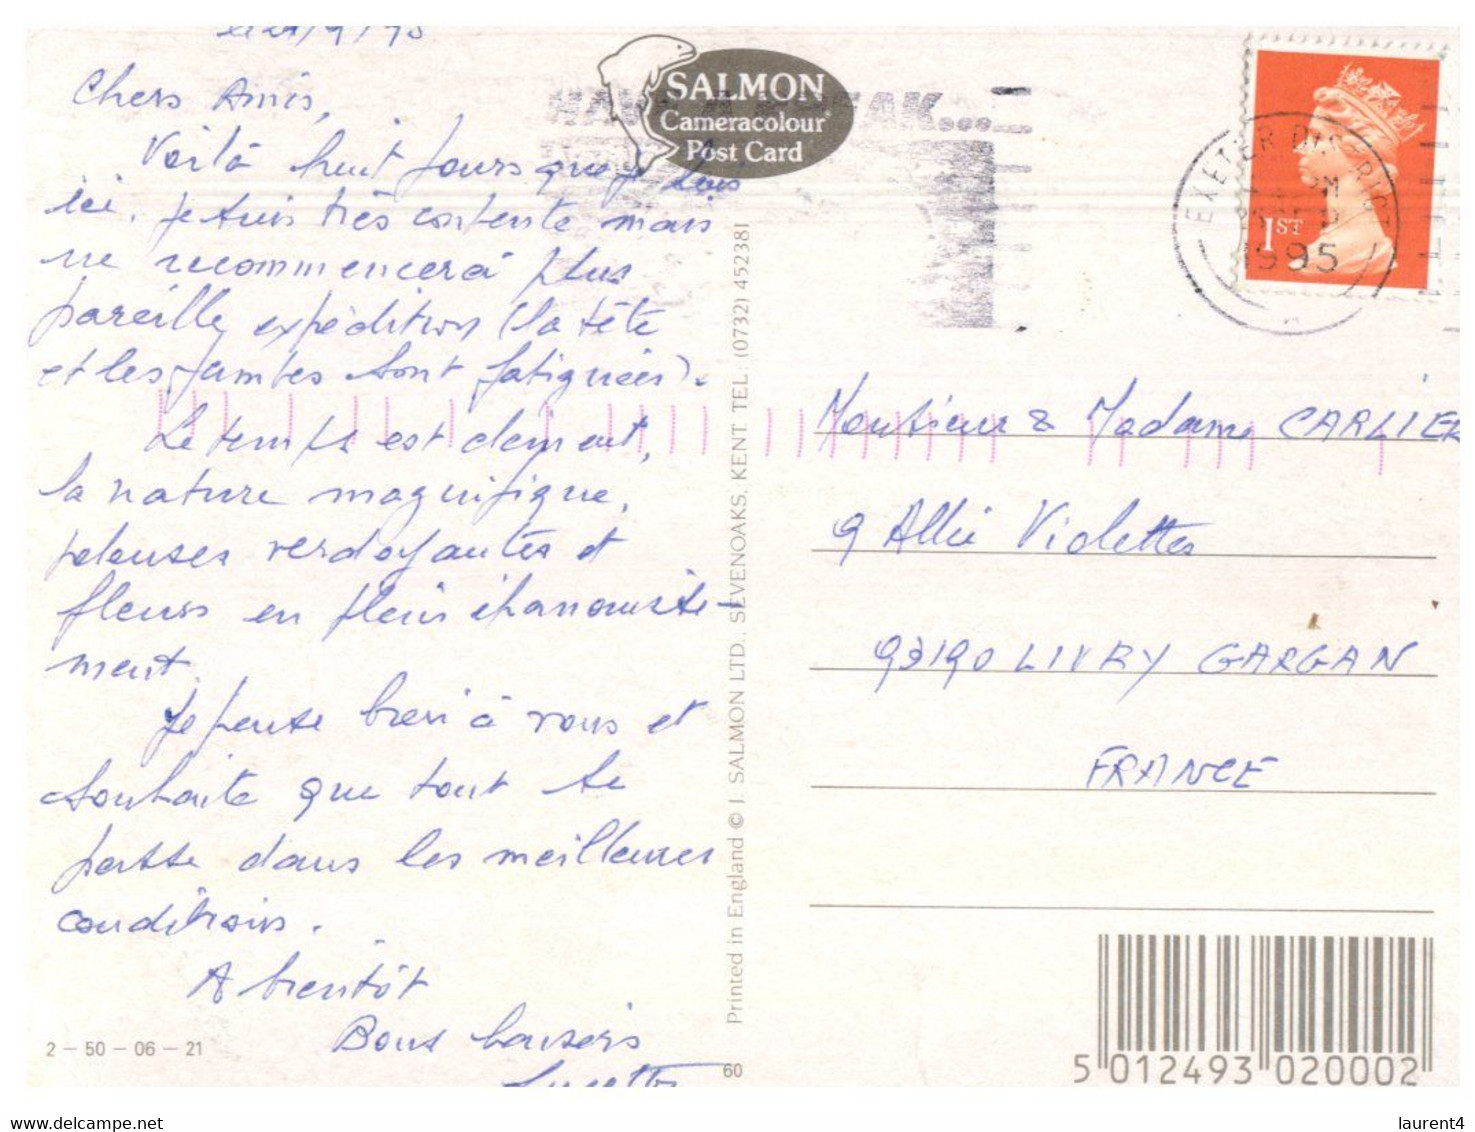 Chers Amis,
Voilà huit jours que je suis
ici. Je suis très contente mais
ne recommencerai plus
pareille expédition (la tête
et les jambes sont fatiguées).
Le temps est clément,
la nature magnifique,
pelouses verdoyantes et
fleurs en plein épanouisse-
ment.
Je pense bien à vous et
souhaite que tout se
passe dans les meilleures
conditions.
A bientôt
Bons baisers
Lucette
2 – 50 – 06 – 21
SALMON
Cameracolour
Post Card
Printed in England © J. SALMON LTD., SEVENOAKS, KENT. TEL: (0732) 452381
60
EXETER DISTRICT
1995
1ST
Monsieur & Madame CARLIER
9 Allée Violettes
93190 LIVRY GARGAN
FRANCE
5 012493 020002
www.delcampe.net
laurent4